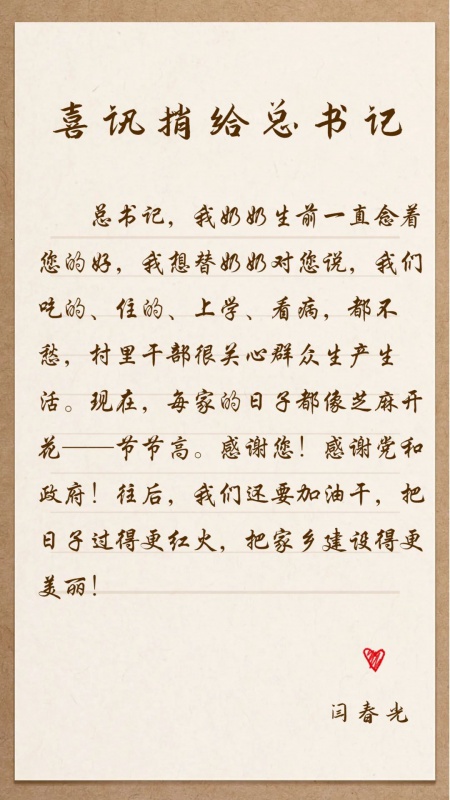 喜讯捎给总书记
总书记，我奶奶生前一直念着
您的好，我想替奶奶对您说，我们
吃的、住的、上学、看病，都不
愁，村里干部很关心群众生产生
活。现在，每家的日子都像芝麻开
花——节节高。感谢您！感谢党和
政府！往后，我们还要加油干，把
日子过得更红火，把家乡建设得更
美丽！
闫春光